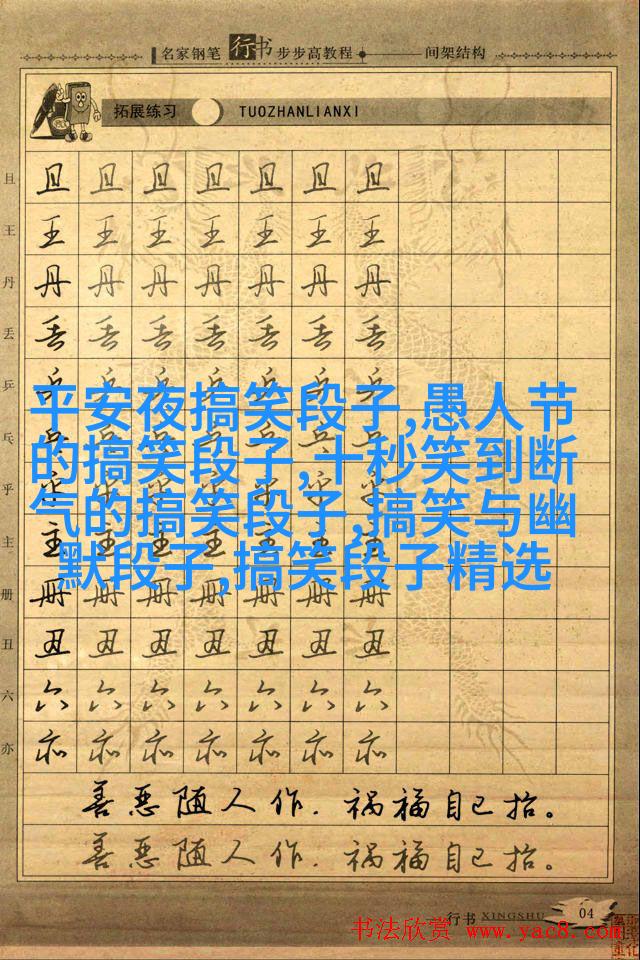 名家钢笔 行书 步步高教程 间架结构
拓展练习 TUOZHANLIANXI
且 且 且 且 且 且 且 且
王 王 王 王 王 王 王 王
丹 丹 丹 丹 丹 丹 丹 丹
丢 丢 丢 丢 丢 丢 丢 丢
乒 乒 乒 乒 乒 乒 乒 乒
平安夜搞笑段子,愚人节
的搞笑段子,十秒笑到断
气的搞笑段子,搞笑与幽
默段子,搞笑段子精选
乓 乓 乓 乓 乓 乓 乓 乓
乎 乎 乎 乎 乎 乎 乎 乎
主 主 主 主 主 主 主 主
册 册 册 册 册 册 册 册
丑 丑 丑 丑 丑 丑 丑 丑
六 六 六 六 六 六 六 六
亦 亦 亦 亦 亦 亦 亦 亦
善恶随人作.祸福自己招。
善恶随人作.祸福自己招。
行书 XINGSHU 04
书法欣赏 www.yac8.com